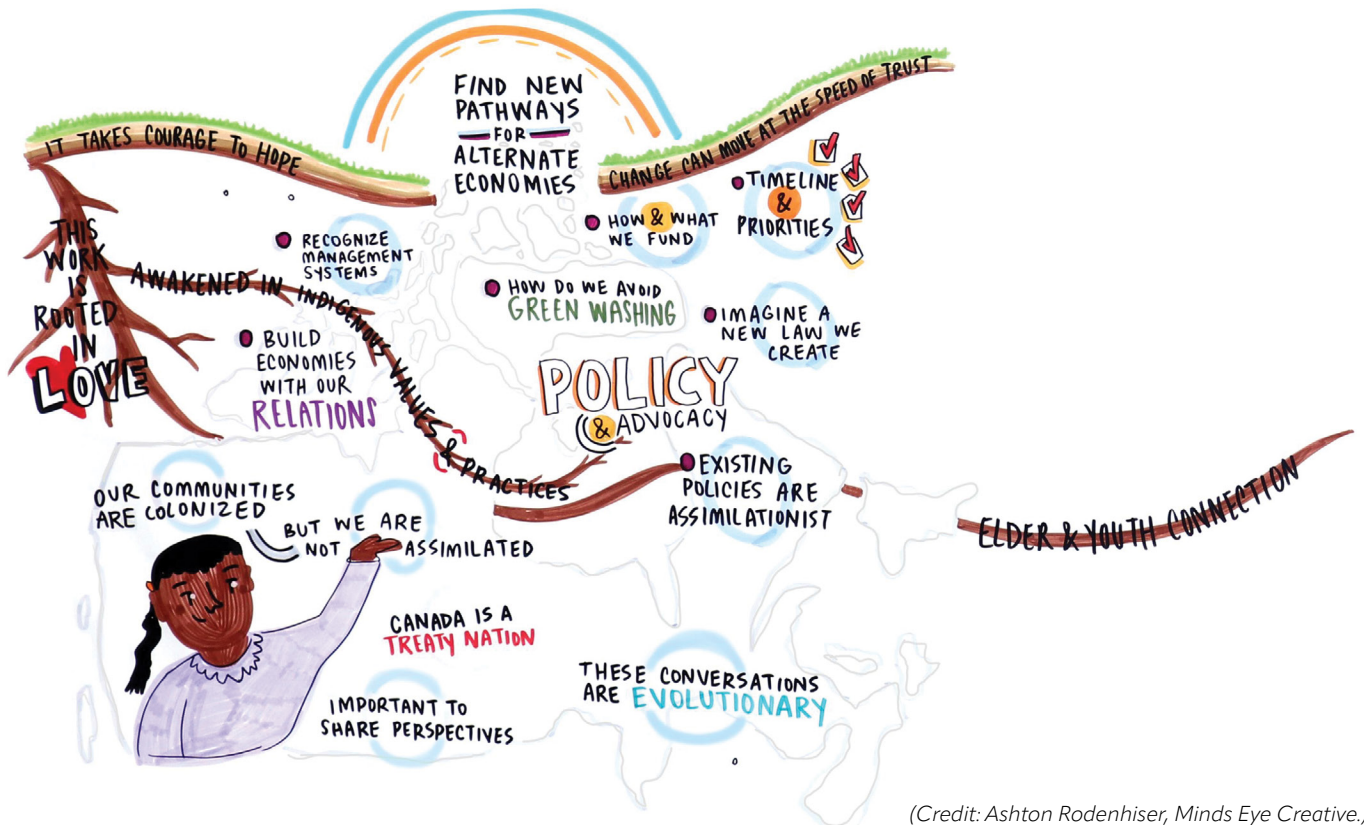 IT TAKES COURAGE TO HOPE
FIND NEW
PATHWAYS
FOR
ALTERNATE
ECONOMIES
CHANGE CAN MOVE AT THE SPEED OF TRUST
THIS
WORK
IS
ROOTED
IN
LOVE
AWAKENED IN INDIGENOUS VALUES & PRACTICES
RECOGNIZE
MANAGEMENT
SYSTEMS
BUILD
ECONOMIES
WITH OUR
RELATIONS
HOW & WHAT
WE FUND
TIMELINE
&
PRIORITIES
HOW DO WE AVOID
GREEN WASHING
IMAGINE A
NEW LAW WE
CREATE
POLICY
& ADVOCACY
EXISTING
POLICIES ARE
ASSIMILATIONIST
ELDER & YOUTH CONNECTION
OUR COMMUNITIES
ARE COLONIZED
BUT WE ARE
NOT ASSIMILATED
CANADA IS A
TREATY NATION
IMPORTANT TO
SHARE PERSPECTIVES
THESE CONVERSATIONS
ARE EVOLUTIONARY
(Credit: Ashton Rodenhiser, Minds Eye Creative.)